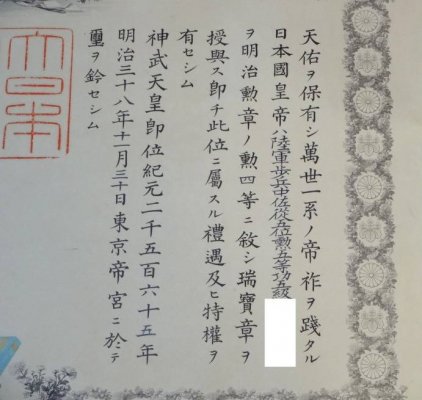 天佑ヲ保有シ萬世一系ノ帝祚ヲ踐タル
日本國皇帝ハ陸軍歩兵中佐從五位勲五等功五級
ヲ明治勲章ノ勲四等ニ敍シ瑞寶章ヲ
授與ス即チ此位ニ屬スル禮遇及ヒ特權ヲ
有セシム
神武天皇即位紀元二千五百六十五年
明治三十八年十一月三十日東京帝宮ニ於テ
璽ヲ鈐セシム
大日本